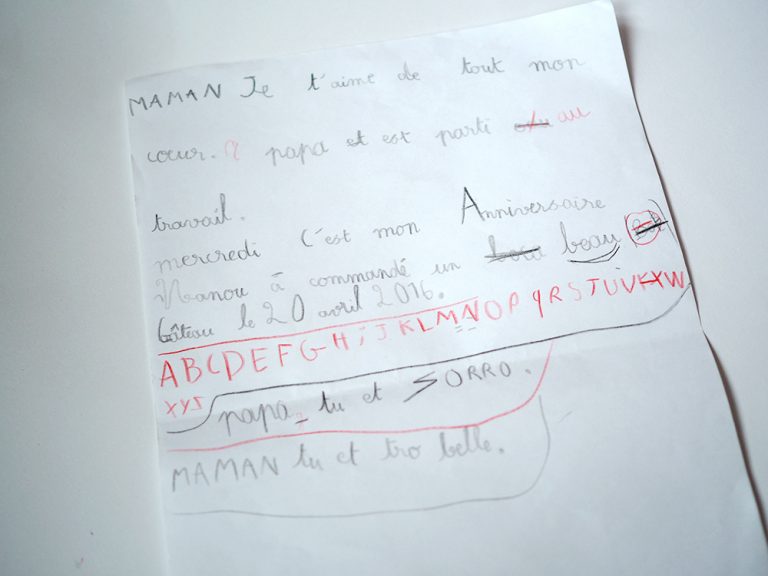 MAMAN Je t'aime de tout mon
cœur. papa et est parti au
travail.
mercredi C'est mon Anniversaire
Nanou à commandé un beau
Gâteau le 20 avril 2016.
ABCDEFGHIJKLMNOPQRSTUVXW
XYZ
papa tu et SORRO.
MAMAN tu et tro belle.